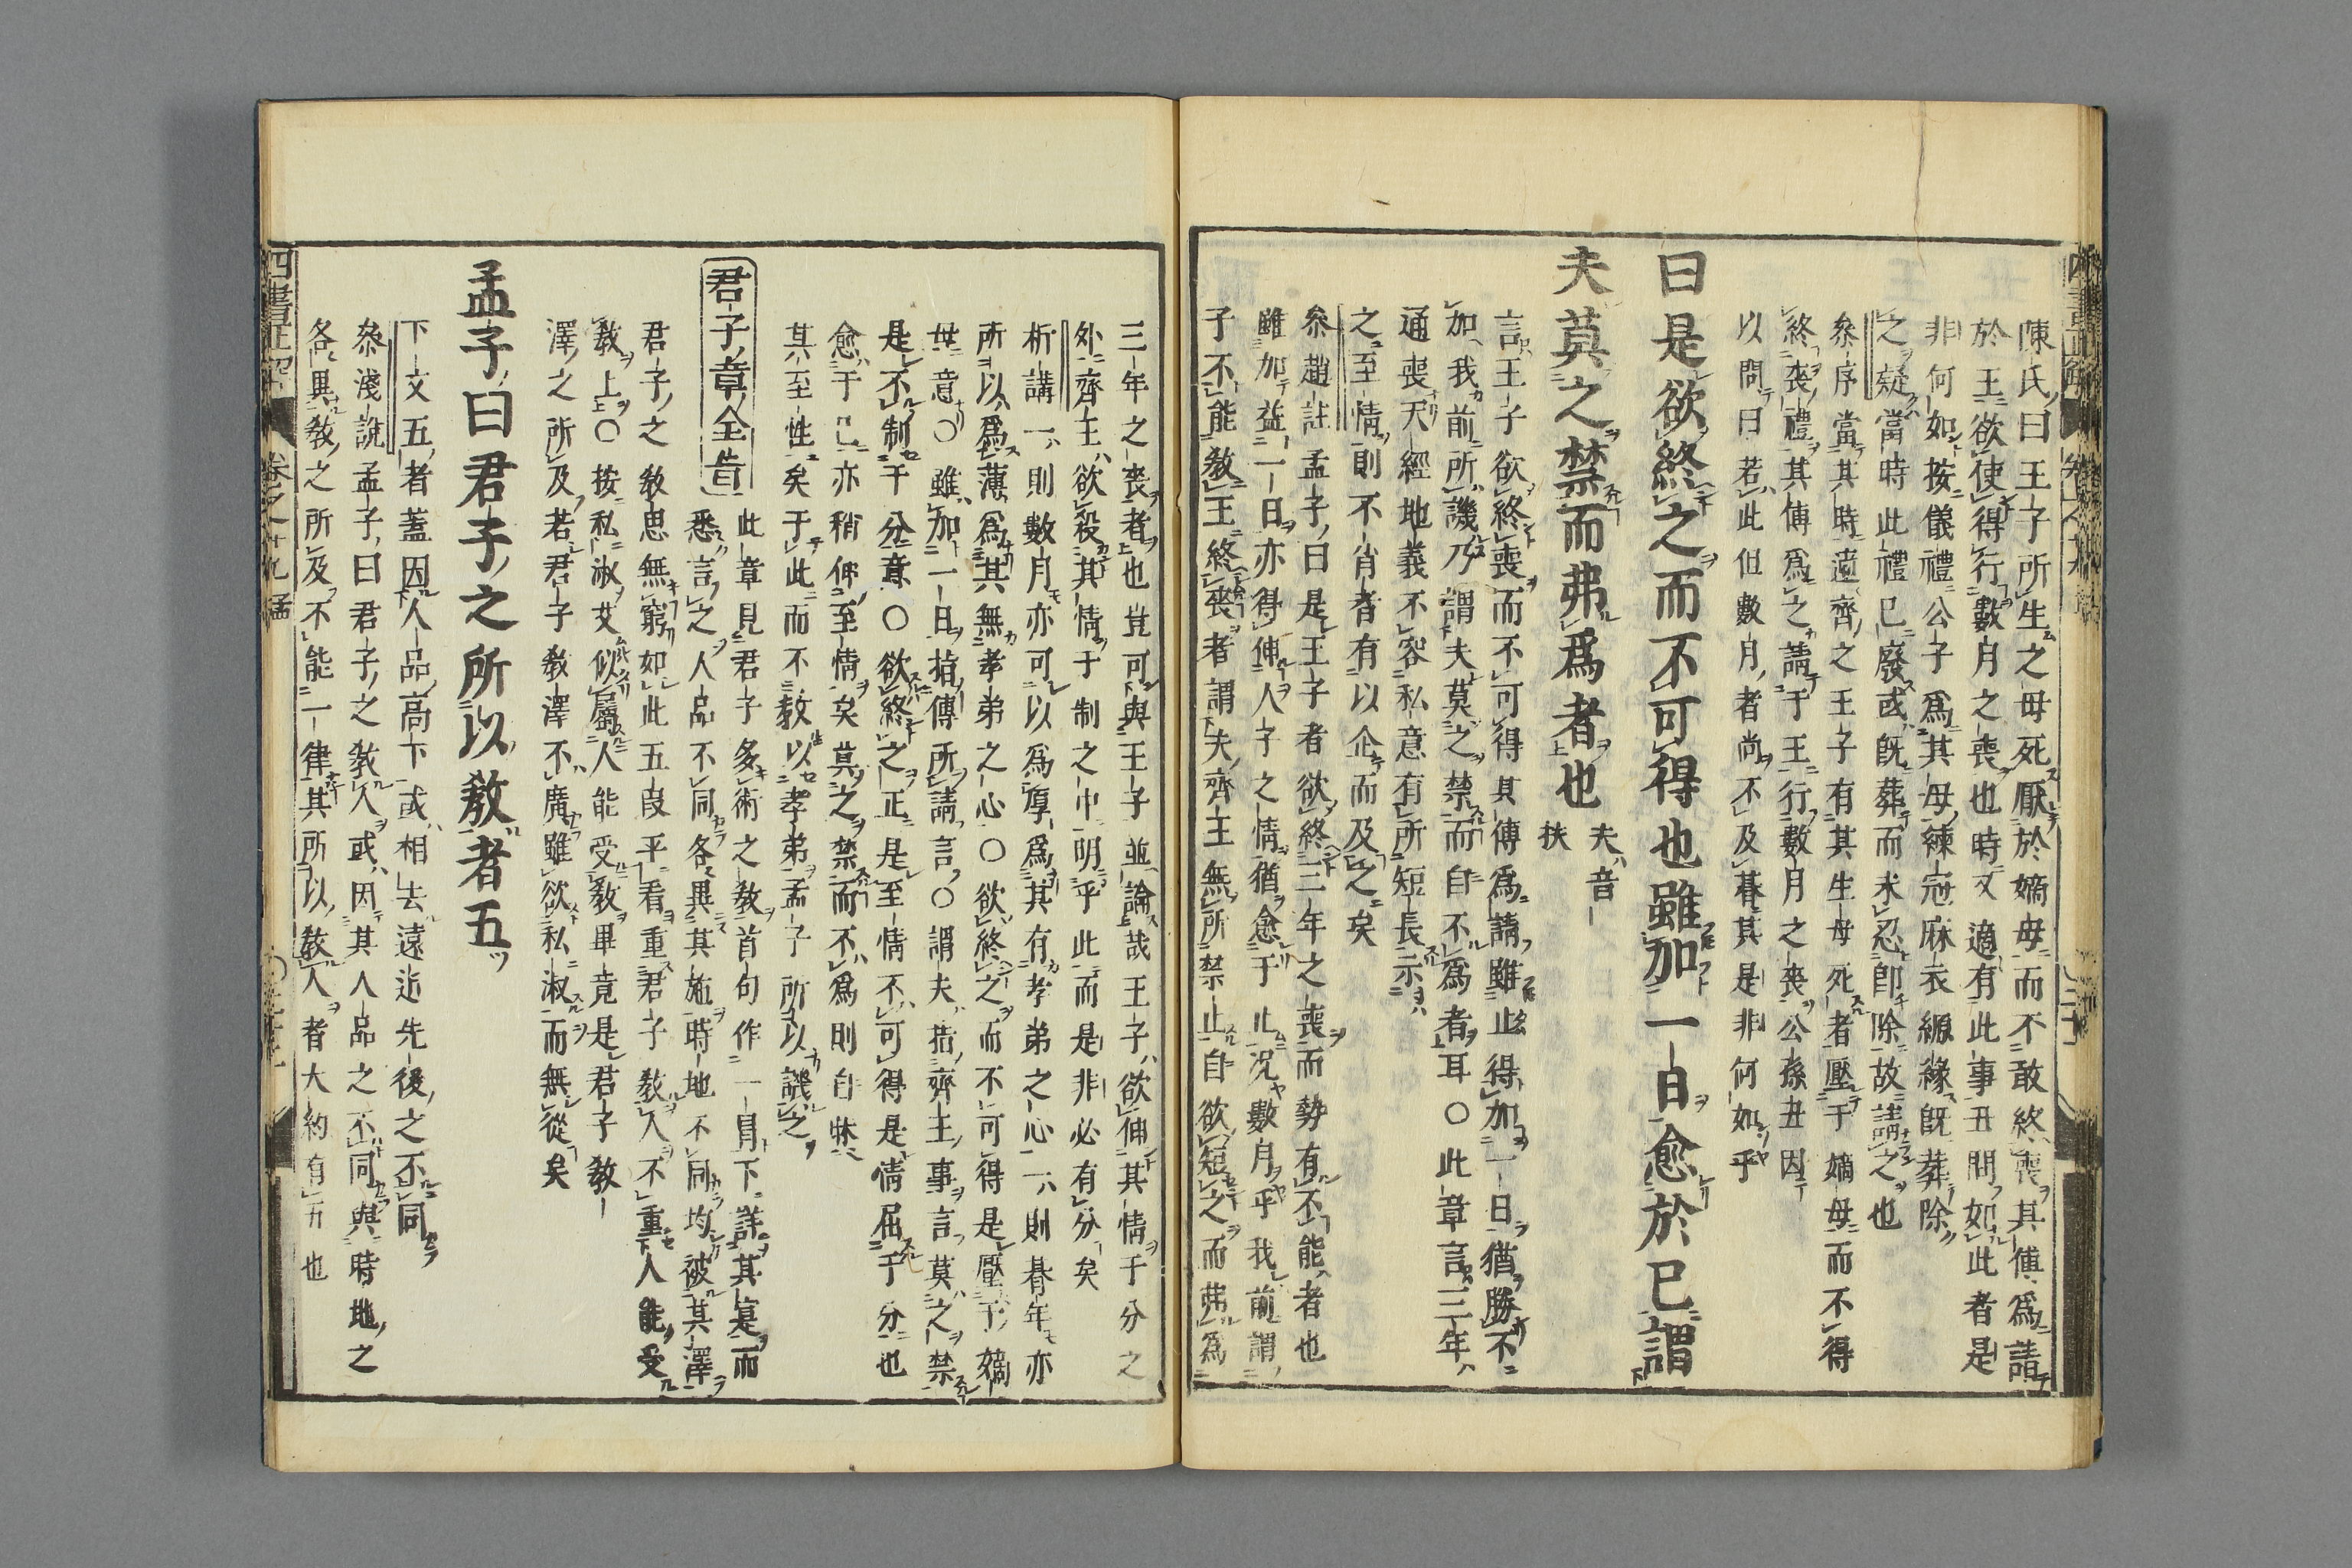 陳氏曰王子所生之母死厭於嫡母而不敢終喪其傅爲請
於王欲使得行數月之喪也時又適有此事丑問如此者是
非何如按儀禮公子爲其母練冠麻衣縓緣旣葬除
之疑當時此禮已廢或旣葬而未忍卽除故請之也
叅序當其時適齊之王子有其生母死者壓于嫡母而不得
終喪禮其傅爲之請于王行數月之喪公孫丑因
以問曰若此但數月者尚不及朞其是非何如乎
曰是欲終之而不可得也雖加一日愈於已謂
夫莫之禁而弗爲者也 夫音扶
言王子欲終喪而不可得其傅爲請雖止得加一日猶勝不
加我前所譏乃謂夫莫之禁而自不爲者耳○此章言三年
通喪天經地義不容私意有所短長示
之至情則不肖者有以企而及之矣
叅趙註孟子曰是王子者欲終三年之喪而勢有不能者也
雖加益一日亦得伸人子之情猶愈于止况數月乎我前謂
子不能敎王終喪者謂夫齊王無所禁止自欲短之而弗爲
三年之喪者也豈可與王子並論哉王子欲伸其情于分之
外齊王欲殺其情于制之中明乎此而是非必有分矣
析講一則數月亦可以爲厚爲其有孝弟之心一則朞年亦
所以爲薄爲其無孝弟之心○欲終之而不可得是壓于嫡
母意○雖加一日指傅所請言○謂夫指齊王事言莫之禁
是不制于分意○欲終之正是至情不可得是情屈于分也
愈于已亦稍伸至情矣莫之禁而不爲則自昧
其至性矣于此而不敎以孝弟孟子所以譏之
君子章全旨 此章見君子多術之敎首句作一冒下詳其寔而
悉言之人品不同各異其施時地不同均被其澤
君子之敎思無窮如此五段平看重君子敎人不重人能受
敎上○按私淑艾似屬人能受敎畢竟是君子敎
澤之所及若君子敎澤不廣雖欲私淑而無從矣
孟子曰君子之所以敎者五
下文五者蓋因人品高下或相去遠近先後之不同
叅淺說孟子曰君子之敎人或因其人品之不同與時地之
各異敎之所及不能一律其所以敎人者大約有五也